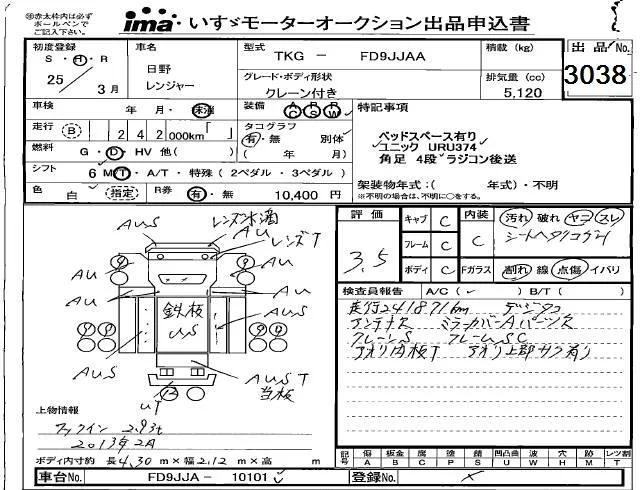 ㊟赤太枠内は必ず
ボールペンで
ご記入下さい。
ima いすゞモーターオークション出品申込書
初度登録
S・H・R
25
3月
車名
日野
レンジャー
型式 TKG - FD9JJAA
グレード・ボディ形状
クレーン付き
積載(kg)
排気量(cc)
5,120
出品No.
3038
車検 年・月・抹消
装備 AC PS PW
走行 B 242000km「 」
タコグラフ
有・無 別体
( 年 月)
燃料 G・D・HV 他( )
シフト 6 MT・A/T・特殊(2ペダル・3ペダル)
色 白 指定 R券 有・無 10,400円
特記事項
ベッドスペース有り
ユニック URU374
角足 4段 ラジコン後送
架装物年式:( 年式)・不明
※不明の場合は、不明に○をする。
評価 3.5
キャブ C
フレーム C
ボディ C
内装 C
汚れ 破れ ヤコ スレ
シートヘタリコゲ
Fガラス 割れ 線 点傷 イバリ
検査員報告 A/C(✓) B/T( )
走行241871km デジタコ
アンテナS ミラーカバーAバーンS
クレーンS フレームSC
アオリ内板T アオリ上部サク有り
AUS
レンズ水滴
AU
レンズT
AU
AU
AU
AU
鉄板
US
AUS
AUS
AUS T
当板
UT
上物情報
フックイン 2.93t
2013年2月
ボディ内寸約 長4.30m×幅2.12m×高 m
記号 傷A 板金B 腐C 塗P 錆S 凹凸曲U 波W 穴H 跡M レンズ割T
車台No. FD9JJA - 10101
登録No.